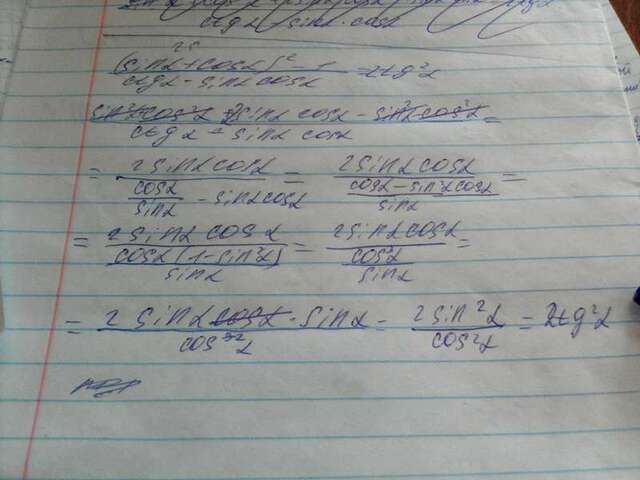 ctgα - sinα·cosα
25
(sinα+cosα)² - 1
ctgα - sinα cosα
= 2tg²α
sin²α cos²α + 2sinα cosα - sin²α cos²α
ctgα - sinα cosα
=
= 2sinα cosα / (cosα/sinα - sinα cosα) = 2sinα cosα / ((cosα - sin²α cosα)/sinα) =
= 2sinα cosα / (cosα (1-sin²α)/sinα) = 2sinα cosα / (cos²α/sinα) =
= 2 sinα cosα · sinα / cos²α = 2sin²α / cos²α = 2tg²α